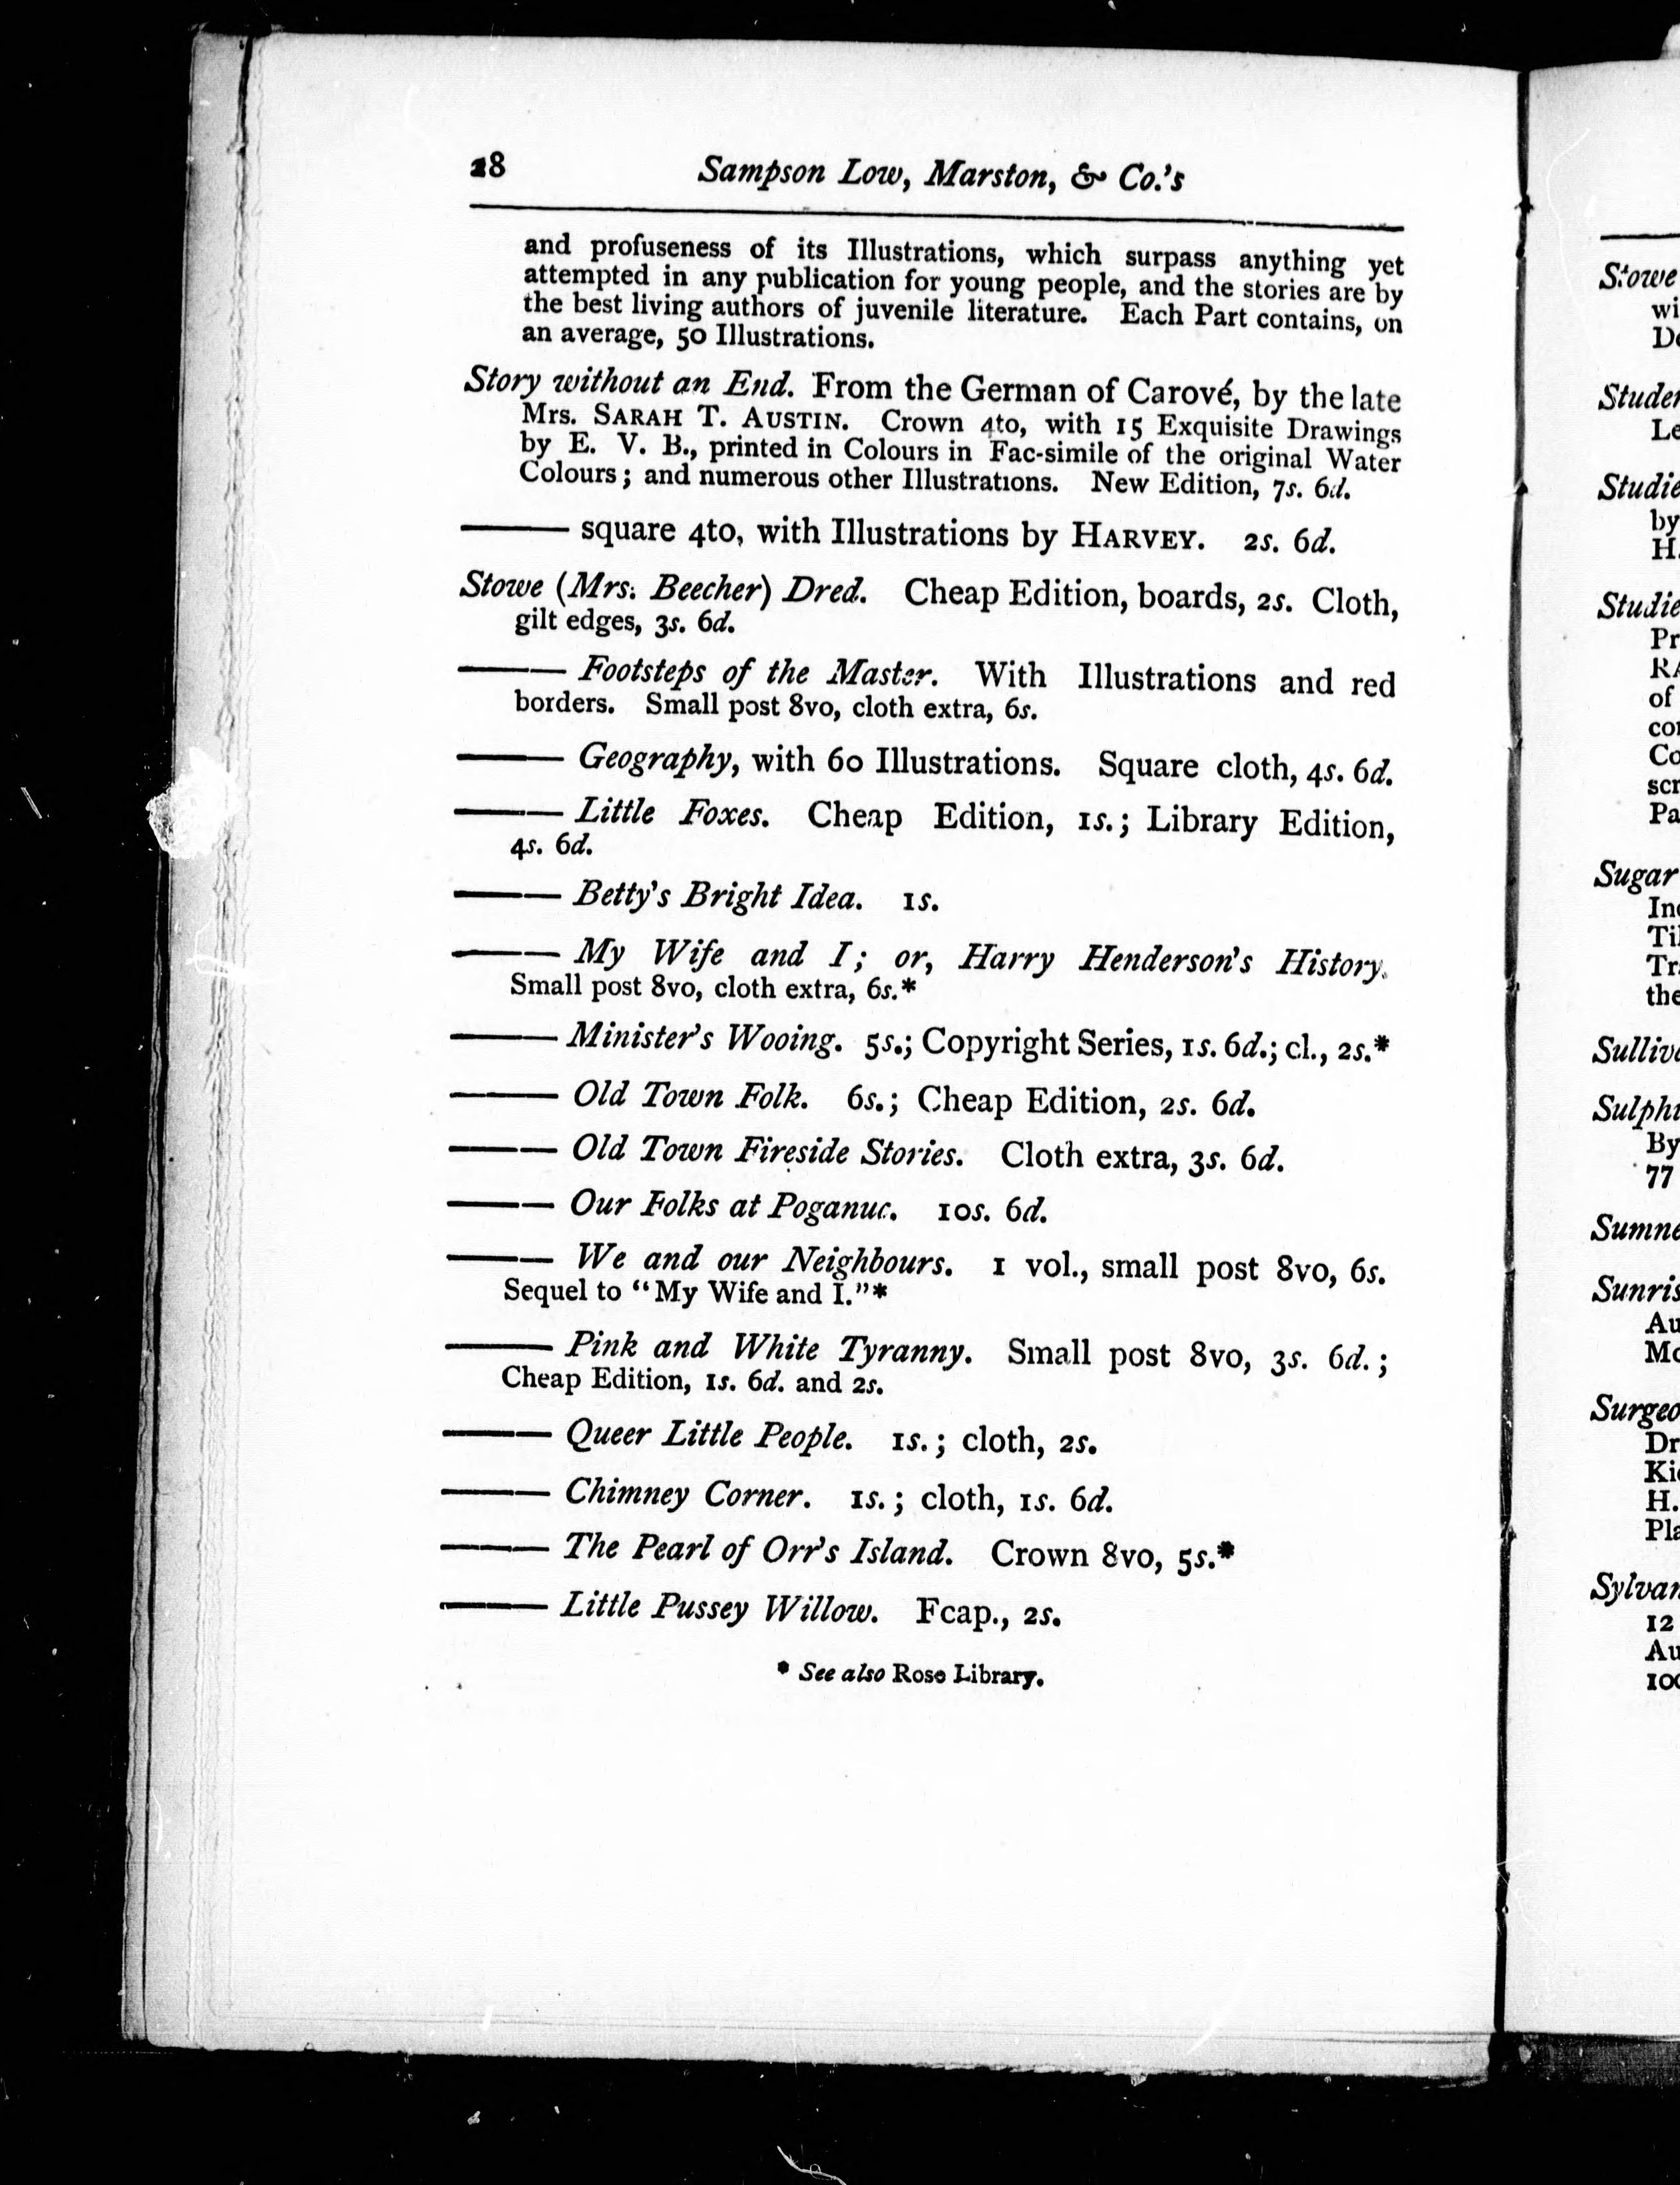 28 Sampson Low, Marston, & Co.'s
and profuseness of its Illustrations, which surpass anything yet
attempted in any publication for young people, and the stories are by
the best living authors of juvenile literature. Each Part contains, on
an average, 50 Illustrations.
Story without an End. From the German of Carové, by the late
Mrs. SARAH T. AUSTIN. Crown 4to, with 15 Exquisite Drawings
by E. V. B., printed in Colours in Fac-simile of the original Water
Colours; and numerous other Illustrations. New Edition, 7s. 6d.
——— square 4to, with Illustrations by HARVEY. 2s. 6d.
Stowe (Mrs. Beecher) Dred. Cheap Edition, boards, 2s. Cloth,
gilt edges, 3s. 6d.
——— Footsteps of the Master. With Illustrations and red
borders. Small post 8vo, cloth extra, 6s.
——— Geography, with 60 Illustrations. Square cloth, 4s. 6d.
——— Little Foxes. Cheap Edition, 1s.; Library Edition,
4s. 6d.
——— Betty's Bright Idea. 1s.
——— My Wife and I; or, Harry Henderson's History.
Small post 8vo, cloth extra, 6s.*
——— Minister's Wooing. 5s.; Copyright Series, 1s. 6d.; cl., 2s.*
——— Old Town Folk. 6s.; Cheap Edition, 2s. 6d.
——— Old Town Fireside Stories. Cloth extra, 3s. 6d.
——— Our Folks at Poganuc. 10s. 6d.
——— We and our Neighbours. 1 vol., small post 8vo, 6s.
Sequel to "My Wife and I."*
——— Pink and White Tyranny. Small post 8vo, 3s. 6d.;
Cheap Edition, 1s. 6d. and 2s.
——— Queer Little People. 1s.; cloth, 2s.
——— Chimney Corner. 1s.; cloth, 1s. 6d.
——— The Pearl of Orr's Island. Crown 8vo, 5s.*
——— Little Pussey Willow. Fcap., 2s.
* See also Rose Library.
Stowe
by
H.
of
Sugar
the
By
77
12